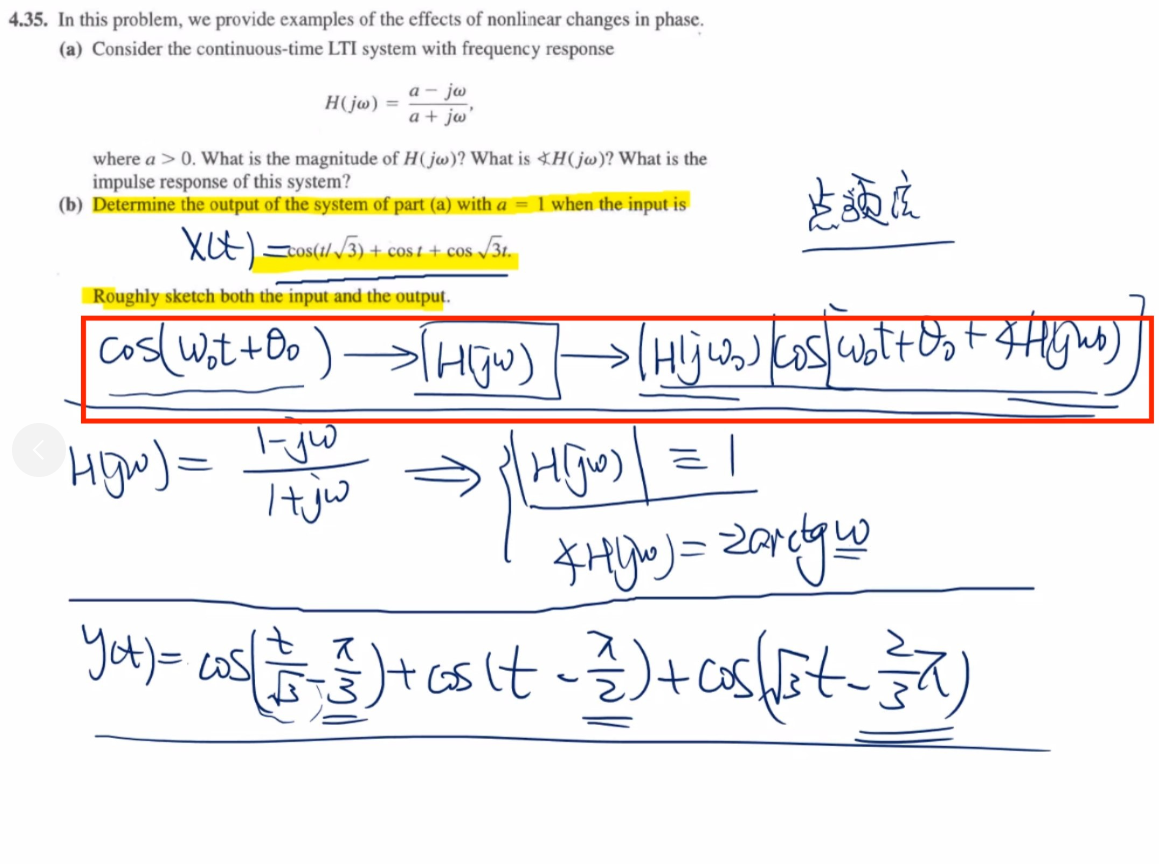 4.35. In this problem, we provide examples of the effects of nonlinear changes in phase.
(a) Consider the continuous-time LTI system with frequency response
H(jω) = \frac{a - jω}{a + jω},
where a > 0. What is the magnitude of H(jω)? What is ∢H(jω)? What is the
impulse response of this system?
(b) Determine the output of the system of part (a) with a = 1 when the input is
点频法
X(t) = cos(t/√3) + cos t + cos √3t.
Roughly sketch both the input and the output.
cos(ω₀t+θ₀) → [H(jω)] → |H(jω₀)|cos[ω₀t+θ₀+∢H(jω₀)]
H(jω) = \frac{1-jω}{1+jω} ⇒ { |H(jω)| ≡ 1
∢H(jω) = -2arctgω
y(t) = cos(\frac{t}{√3} - \frac{π}{3}) + cos(t - \frac{π}{2}) + cos(√3t - \frac{2}{3}π)